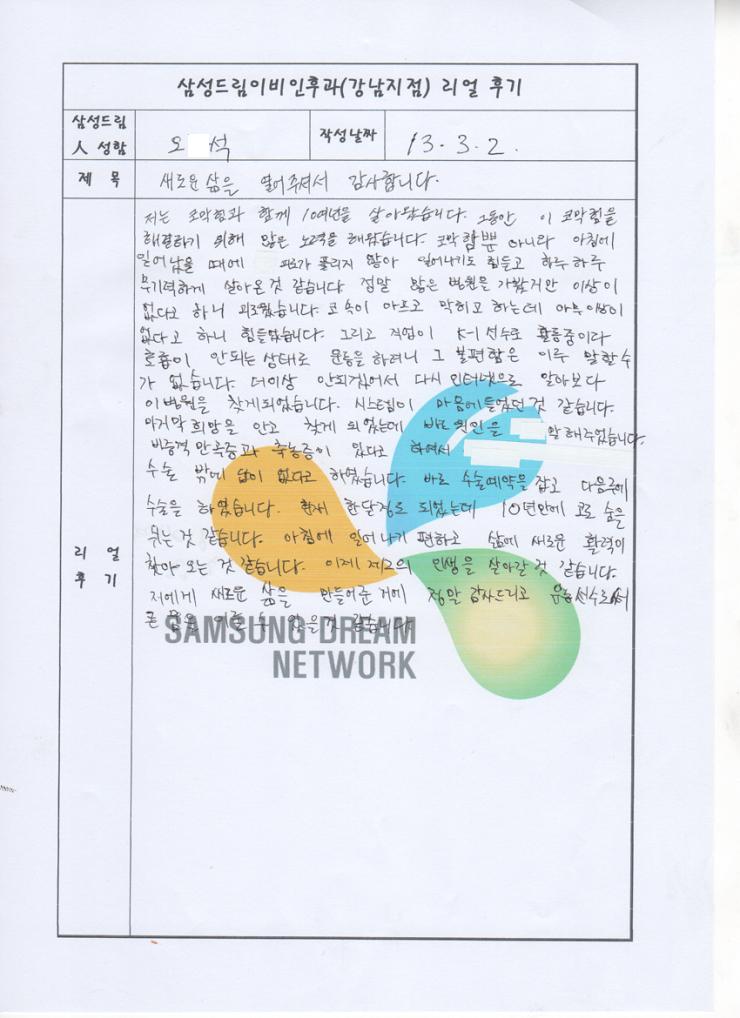 삼성드림이비인후과(강남지점) 리얼 후기
삼성드림
人 성함
오 석
작성날짜
13. 3. 2.
제 목
새로운 삶을 열어주셔서 감사합니다.
저는 코막힘과 함께 10여년을 살아왔습니다. 그동안 이 코막힘을
해결하기 위해 많은 노력을 해왔습니다. 코막힘뿐 아니라 아침에
일어났을 때에 피로가 풀리지 않아 일어나기도 힘들고 하루 하루
무기력하게 살아온것 같습니다 정말 많은 병원을 가봤지만 이상이
없다고 하니 괴로웠습니다. 코속이 아프고 막히고 하는데 아무이상이
없다고 하니 힘들었습니다. 그리고 직업이 K-1 선수로 활동중이라
호흡이 안되는 상태로 운동을 하려니 그 불편함은 이루 말할수
가 없습니다. 더이상 안되겠어서 다시 인터넷으로 알아보다
이병원을 찾게되었습니다. 시스템이 마음에들었던것 같습니다.
마지막 희망을 안고 찾게 되었는데 바로 원인을 말해주었습니다
비중격 만곡증과 축농증이 있다고 하여서
수술 밖에 답이 없다고 하였습니다. 바로 수술예약을 잡고 다음주에
수술을 하였습니다. 현재 한달정도 되었는데 10년만에 코로 숨을
쉬는것 같습니다. 아침에 일어나기 편하고 삶에 새로운 활력이
찾아 오는 것 같습니다. 이제 제2의 인생을 살아갈것 같습니다.
저에게 새로운 삶을 만들어준 거에 정말 감사드리고 운동선수로서
큰 꿈을 이룰 수 있을것 같습니다.
리 얼
후 기
SAMSUNG DREAM
NETWORK